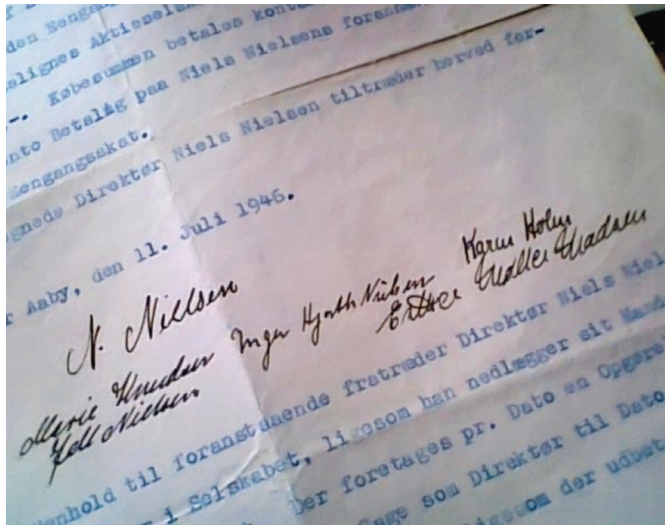 den Eengan
alignes Aktieselsk
Købesummen betales kont
nto Betalig paa Niels Nielsens foran
Eengangsskat.
egnede Direktør Niels Nielsen tiltræder herved for-
Aaby, den 11. Juli 1946.
N. Nielsen
Karen Holm
Marie Knudsen Inger Hjorth Nielsen Esther Møller Madsen
Nielsen
enhold til foranstaaende fratræder Direktør Niels Niel
i Selskabet, ligesom han nedlægger sit Mand
Der foretages pr. Dato en Opgørel
Gage som Direktør til Dato
ligesom der udbet